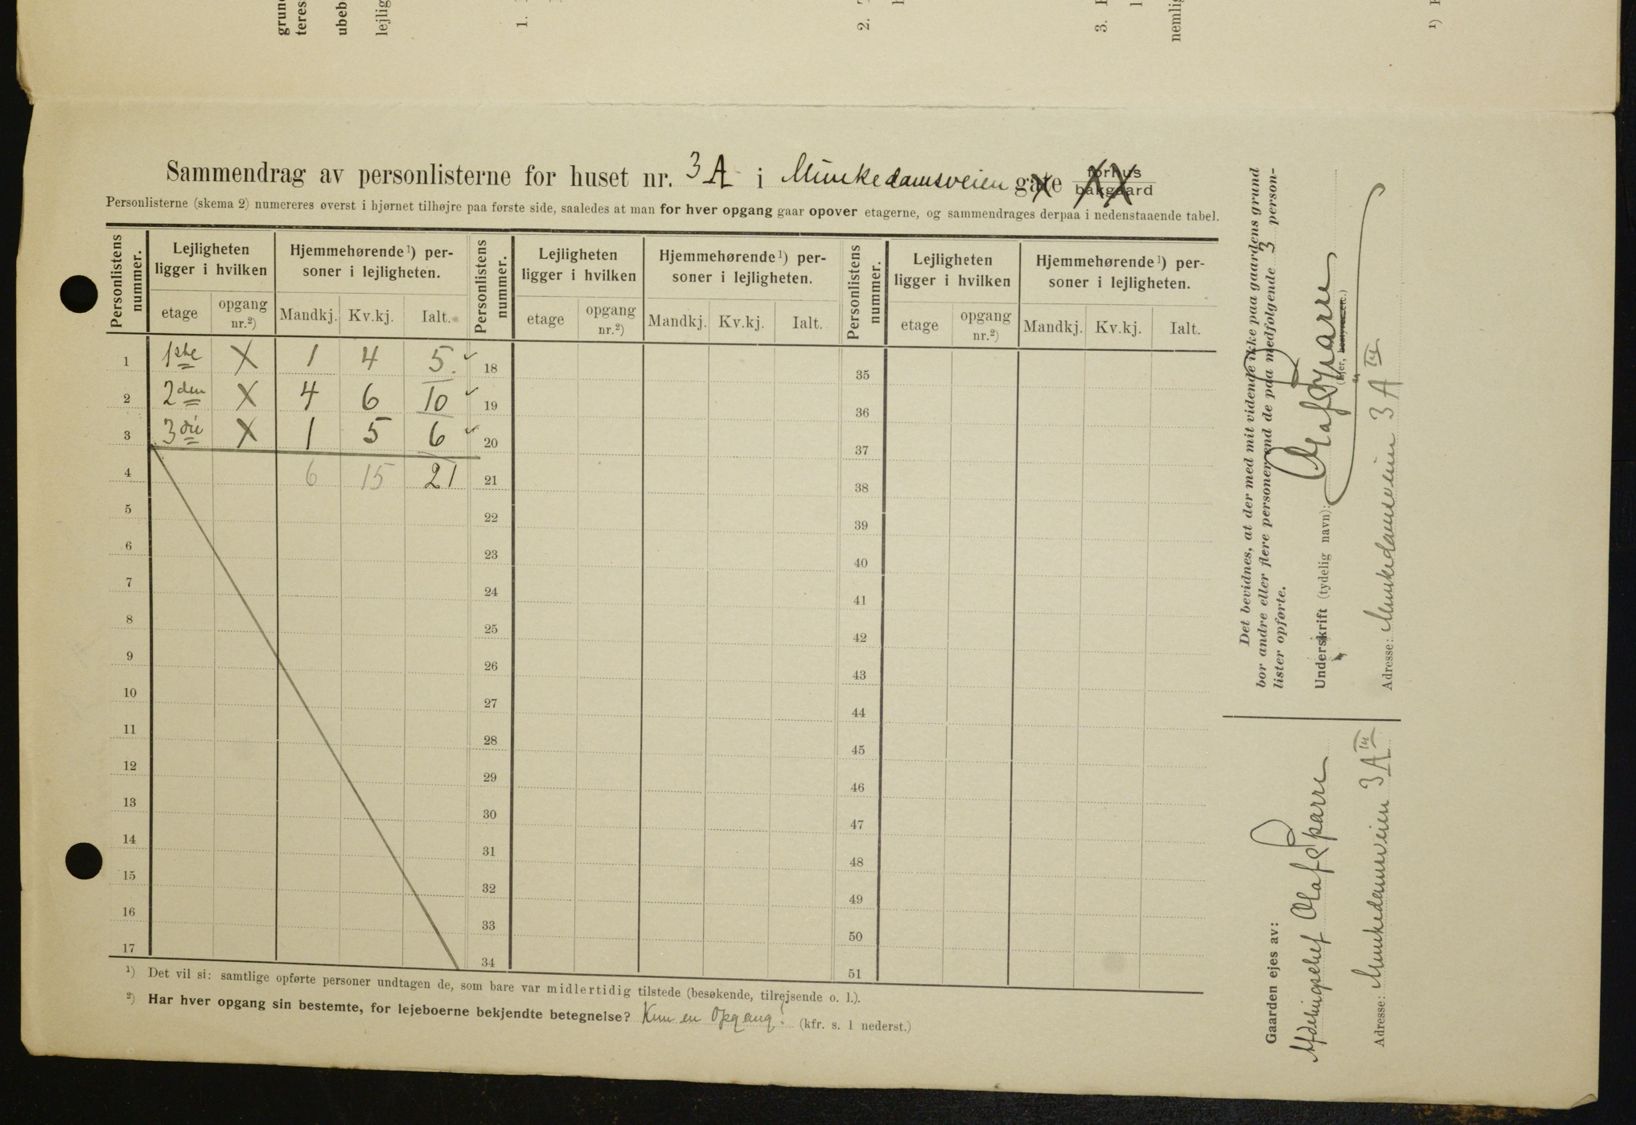 grund
teres
ubeb
lejlig
1.
2.
3.
nemlig
¹)
Sammendrag av personlisterne for huset nr. 3 A i Munkedamsveien gate forhus bakgaard
Personlisterne (skema 2) numereres øverst i hjørnet tilhøjre paa første side, saaledes at man for hver opgang gaar opover etagerne, og sammendrages derpaa i nedenstaaende tabel.
Personlistens nummer. Lejligheten ligger i hvilken Hjemmehørende¹) personer i lejligheten. Personlistens nummer. Lejligheten ligger i hvilken Hjemmehørende¹) personer i lejligheten. Personlistens nummer. Lejligheten ligger i hvilken Hjemmehørende¹) personer i lejligheten.
etage opgang nr.²) Mandkj. Kv.kj. Ialt. etage opgang nr.²) Mandkj. Kv.kj. Ialt. etage opgang nr.²) Mandkj. Kv.kj. Ialt.
1 1ste X 1 4 5. 18 35
2 2den X 4 6 10 19 36
3 3die X 1 5 6 20 37
4 6 15 21 21 38
5 22 39
6 23 40
7 24 41
8 25 42
9 26 43
10 27 44
11 28 45
12 29 46
13 30 47
14 31 48
15 32 49
16 33 50
17 34 51
¹) Det vil si: samtlige opførte personer undtagen de, som bare var midlertidig tilstede (besøkende, tilrejsende o. l.).
²) Har hver opgang sin bestemte, for lejeboerne bekjendte betegnelse? Kun en Opgang! (kfr. s. 1 nederst.)
Det bevidnes, at der med mit vidende ikke paa gaardens grund
bor andre eller flere personer end de paa medfølgende 3 person-
lister opførte.
Underskrift (tydelig navn): Olaf Sparre
Adresse: Munkedamsveien 3 A III
Gaarden ejes av:
Afdelingschef Olaf Sparre
Adresse: Munkedamsveien 3 A III